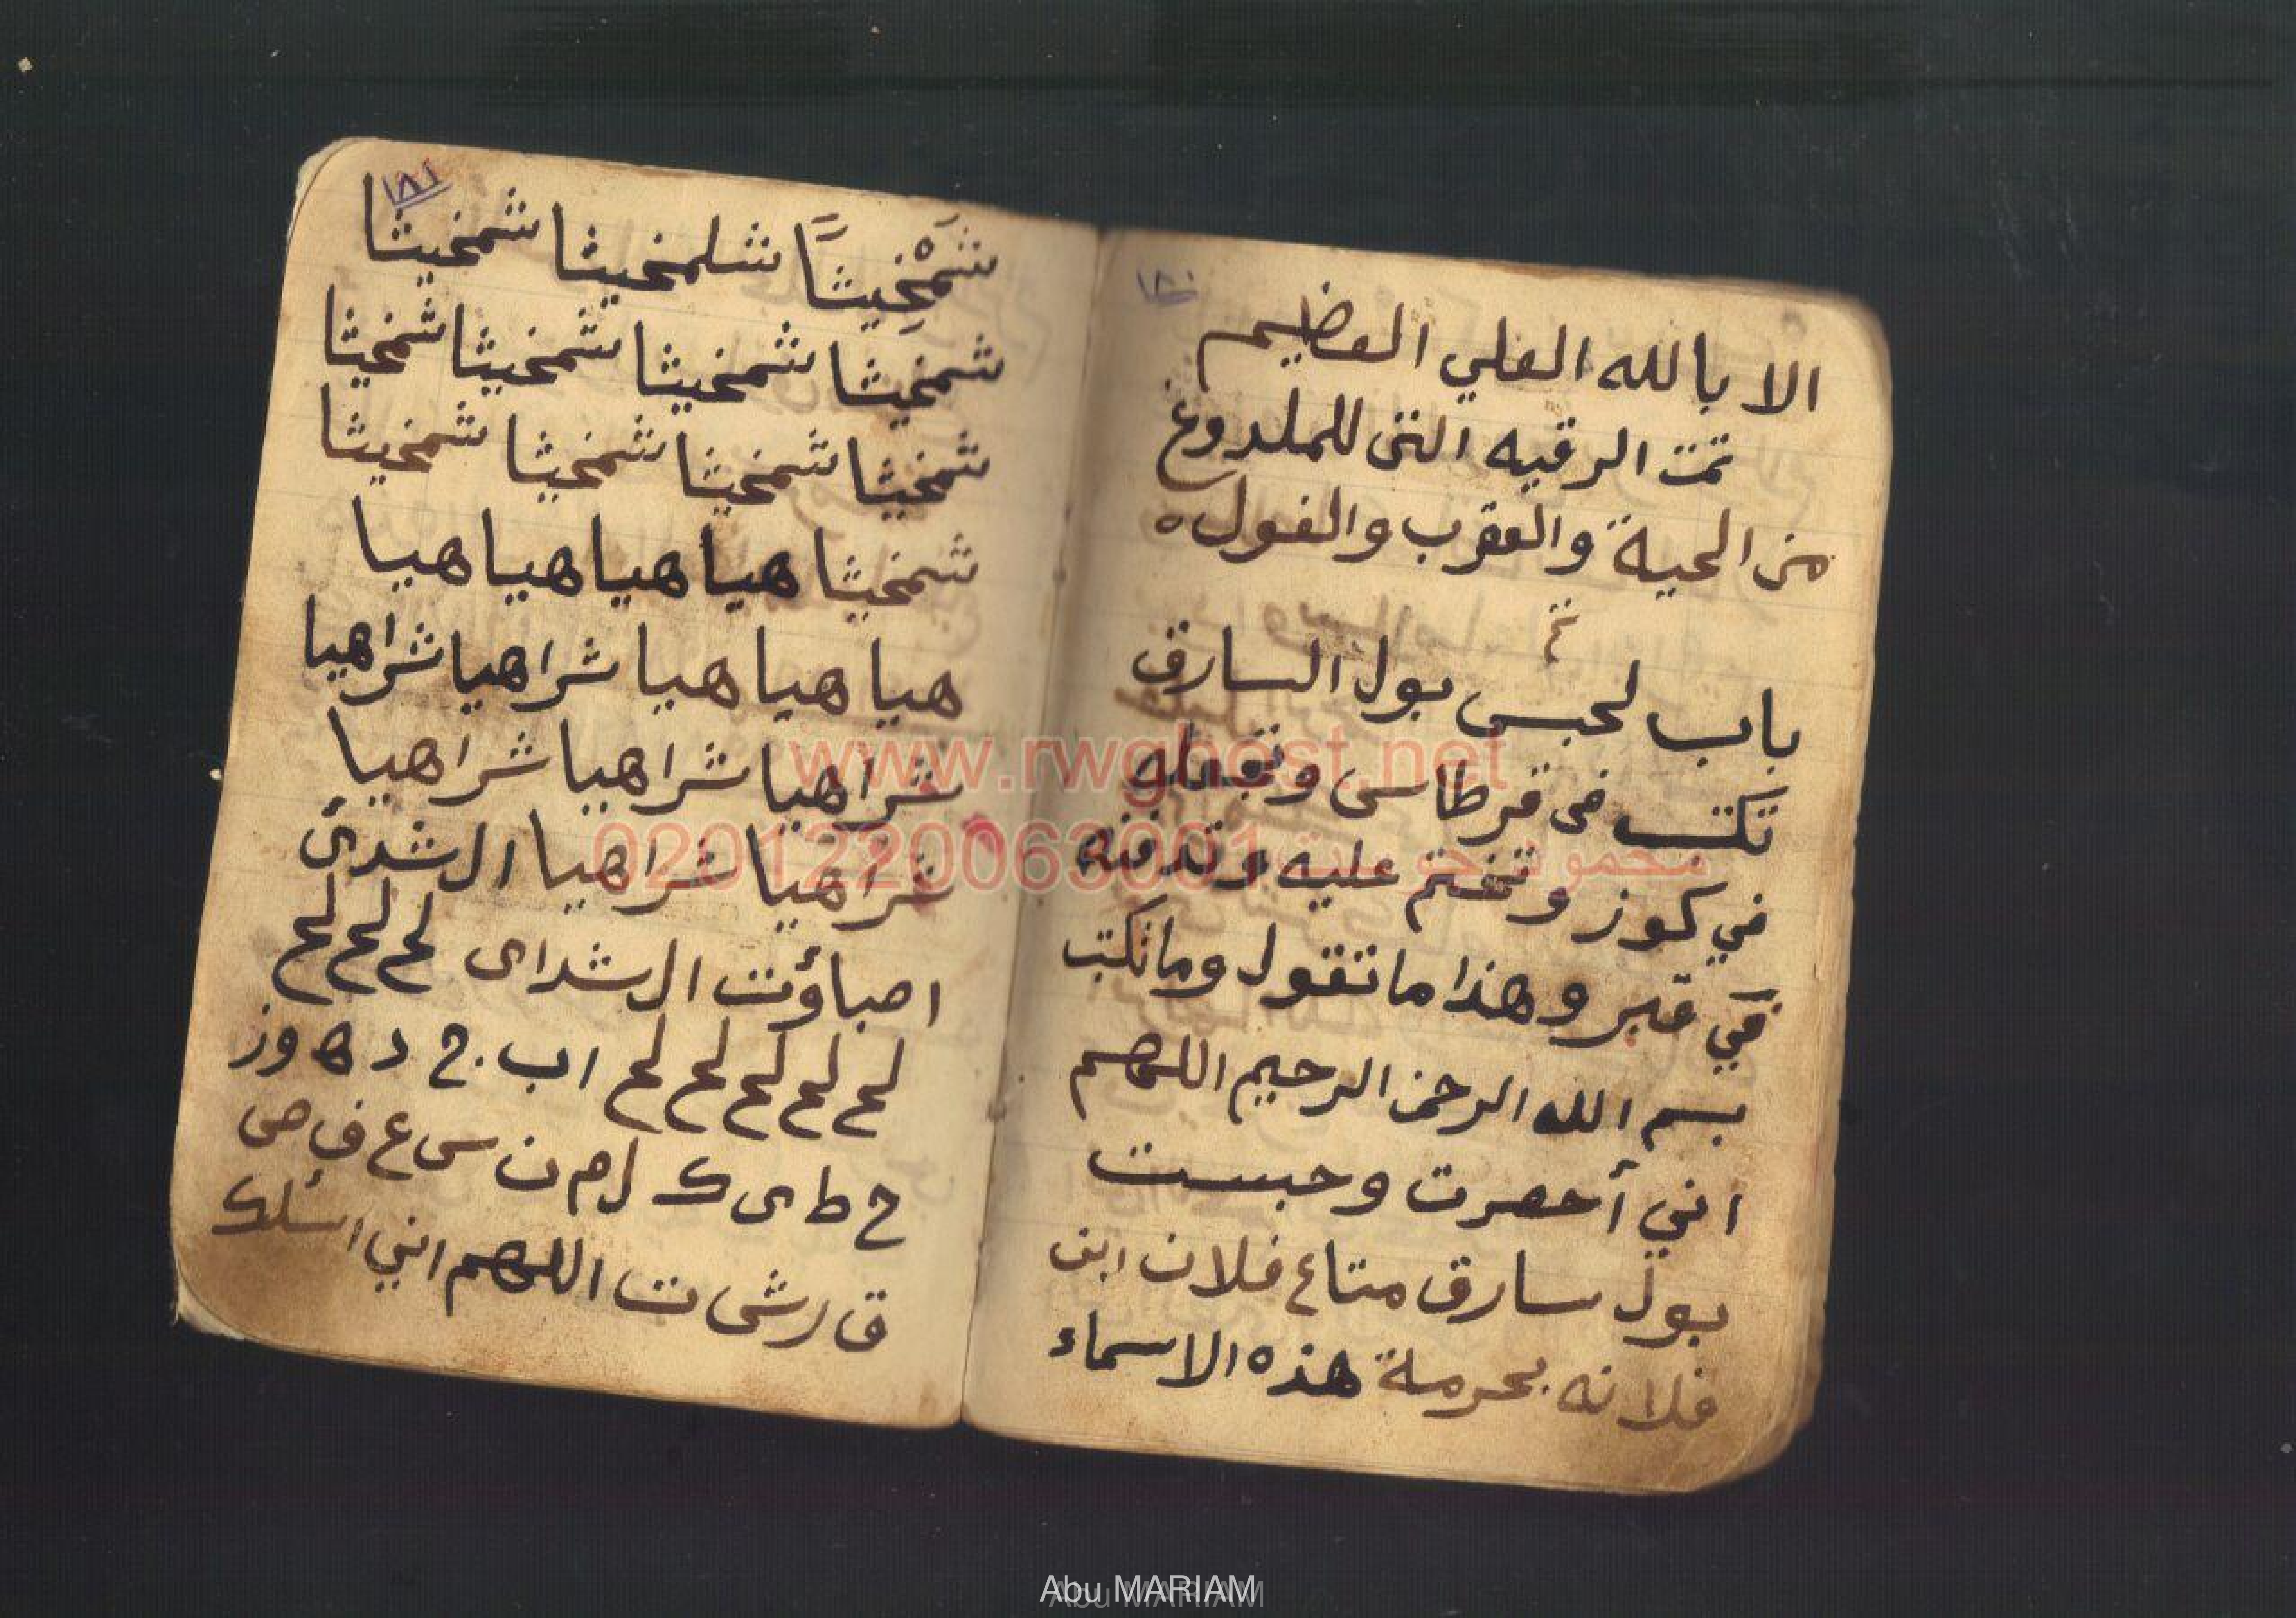 ١٨٠
الا بالله العلي العظيم
تمت الرقيه التى للملدوغ
من الحية والعقرب والغول ه
تم
باب لحبس بول السارق
تكتب فى قرطاس وتجعله
في كوز وتختم عليه وتدفنه
في قبر وهذا ما تقول وما تكتب
بسم الله الرحمن الرحيم اللهم
اني أحصرت وحبست
بول سارق متاع فلان ابن
فلانه بحرمة هذه الاسماء
١٨١
شَمْخِيثَاً شلمخيثا شمخيثا
شمخيثا شمخيثا شمخيثا شمخيثا
شمخيثا شمخيثا شمخيثا شمخيثا
شمخيثا هيا هيا هيا هيا
هيا هيا هيا شراهيا شراهيا
شراهيا شراهيا شراهيا
شراهيا شراهيا ال شدئ
اصباؤت ال شداى لح لح لح
لح لح لح لح لح ا ب ج د ه و ز
ح ط ى ك ل م ن س ع ف ص
ق ر ش ت اللهم اني اسئلك
www.rwghost.net
0201220063001
Abu MARIAM